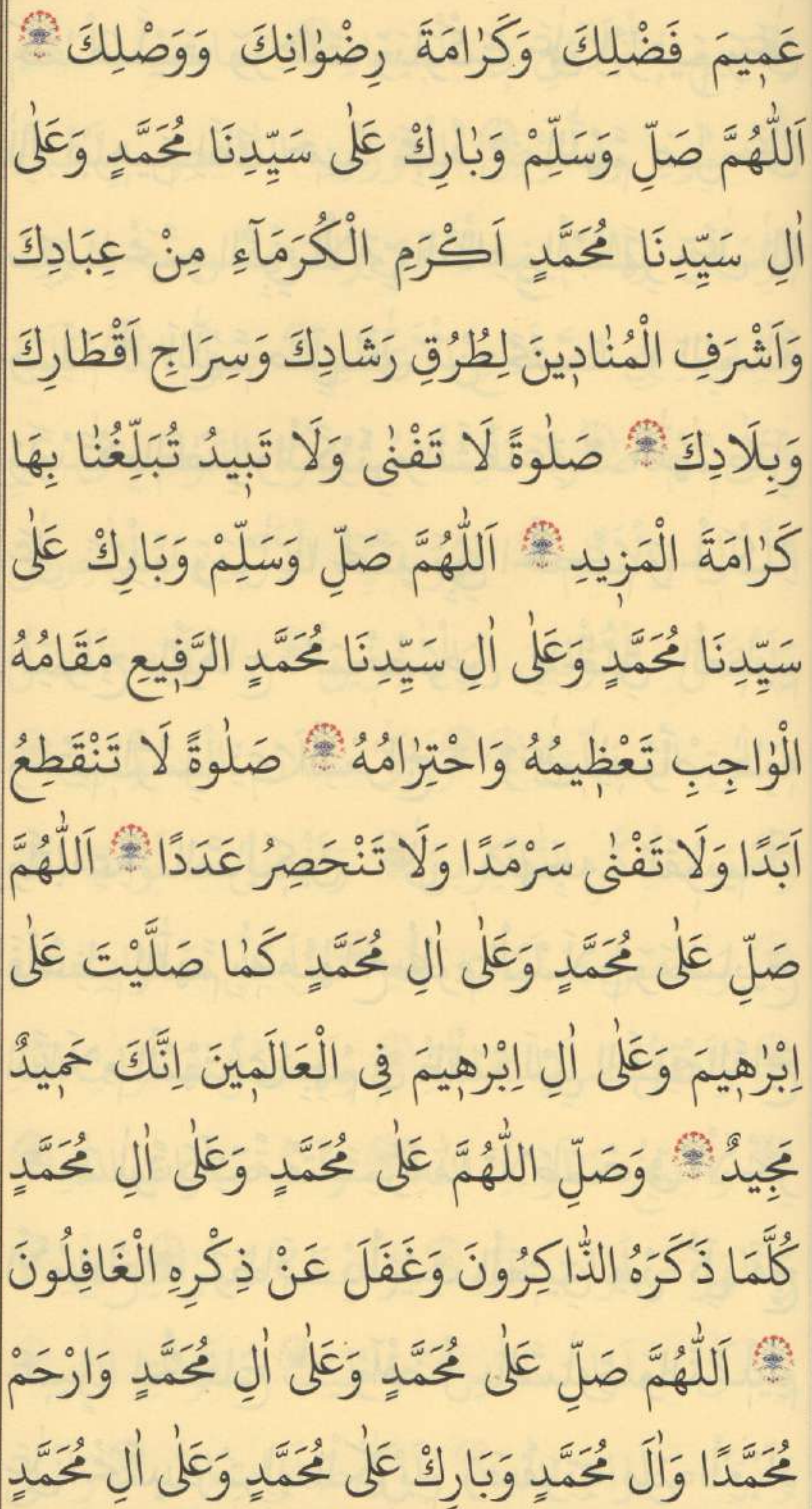 عَمٖيمَ فَضْلِكَ وَكَرٰامَةَ رِضْوٰانِكَ وَوَصْلِكَ ۞
اَللّٰهُمَّ صَلِّ وَسَلِّمْ وَبٰارِكْ عَلٰى سَيِّدِنَا مُحَمَّدٍ وَعَلٰى
اٰلِ سَيِّدِنَا مُحَمَّدٍ اَكْرَمِ الْكُرَمَآءِ مِنْ عِبَادِكَ
وَاَشْرَفِ الْمُنٰادٖينَ لِطُرُقِ رَشَادِكَ وَسِرَاجِ اَقْطَارِكَ
وَبِلَادِكَ ۞ صَلٰوةً لَا تَفْنٰى وَلَا تَبٖيدُ تُبَلِّغُنٰا بِهَا
كَرٰامَةَ الْمَزٖيدِ ۞ اَللّٰهُمَّ صَلِّ وَسَلِّمْ وَبَارِكْ عَلٰى
سَيِّدِنَا مُحَمَّدٍ وَعَلٰى اٰلِ سَيِّدِنَا مُحَمَّدٍ الرَّفٖيعِ مَقَامُهُ
الْوٰاجِبِ تَعْظٖيمُهُ وَاحْتِرٰامُهُ ۞ صَلٰوةً لَا تَنْقَطِعُ
اَبَدًا وَلَا تَفْنٰى سَرْمَدًا وَلَا تَنْحَصِرُ عَدَدًا ۞ اَللّٰهُمَّ
صَلِّ عَلٰى مُحَمَّدٍ وَعَلٰى اٰلِ مُحَمَّدٍ كَمٰا صَلَّيْتَ عَلٰى
اِبْرٰهٖيمَ وَعَلٰى اٰلِ اِبْرٰهٖيمَ فِى الْعَالَمٖينَ اِنَّكَ حَمٖيدٌ
مَجٖيدٌ ۞ وَصَلِّ اللّٰهُمَّ عَلٰى مُحَمَّدٍ وَعَلٰى اٰلِ مُحَمَّدٍ
كُلَّمَا ذَكَرَهُ الذّٰاكِرُونَ وَغَفَلَ عَنْ ذِكْرِهِ الْغَافِلُونَ
۞ اَللّٰهُمَّ صَلِّ عَلٰى مُحَمَّدٍ وَعَلٰى اٰلِ مُحَمَّدٍ وَارْحَمْ
مُحَمَّدًا وَاٰلَ مُحَمَّدٍ وَبَارِكْ عَلٰى مُحَمَّدٍ وَعَلٰى اٰلِ مُحَمَّدٍ